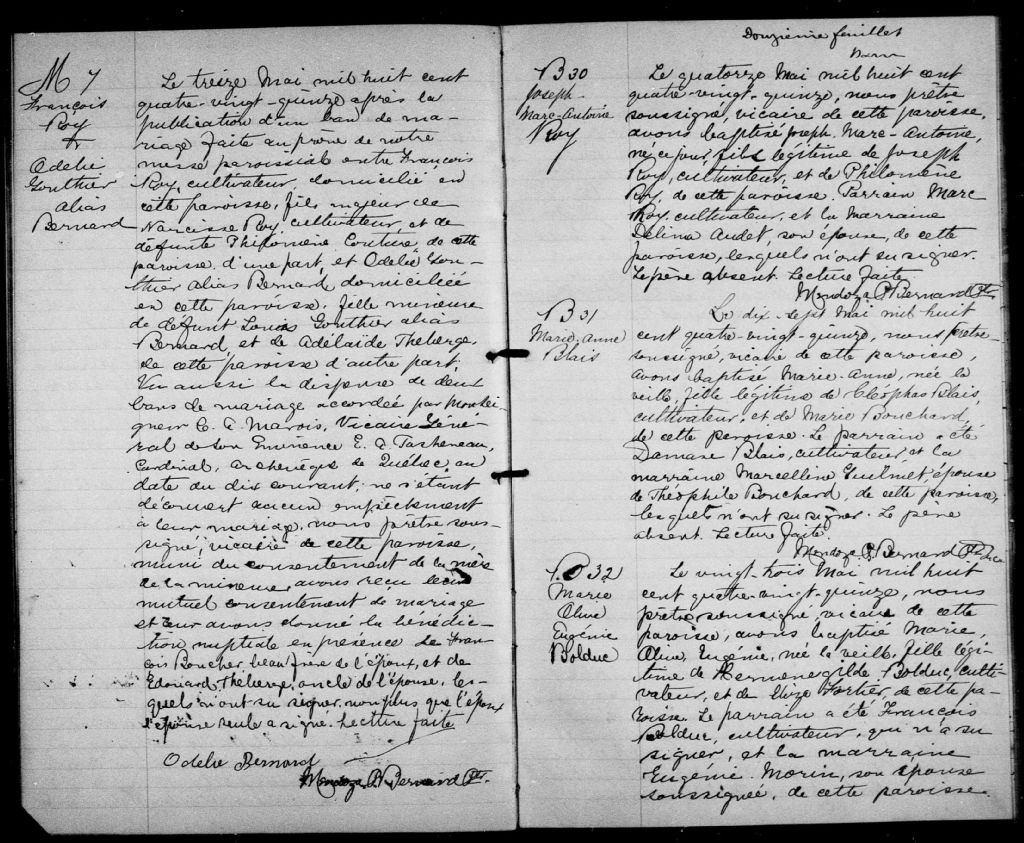 M 7
François
Roy
&
Odelie
Gonthier
alias
Bernard
Le treize Mai mil huit cent
quatre-vingt-quinze après la
publication d'un ban de ma-
riage faite au prône de notre
messe paroissiale entre François
Roy, cultivateur, domicilié en
cette paroisse, fils majeur de
Narcisse Roy, cultivateur, et de
défunte Philomène Couture, de cette
paroisse, d'une part, et Odelie Gon-
thier alias Bernard domiciliée
en cette paroisse, fille mineure
de défunt Louis Gonthier alias
Bernard et de Adélaïde Theberge,
de cette paroisse d'autre part,
Vu aussi la dispense de deux
bans de mariage accordée par Monsei-
gneur C. A. Marois, Vicaire Géné-
ral de Son Eminence E. A. Taschereau,
Cardinal, archevêque de Québec, au
date du dix courant, ne s'étant
découvert aucun empêchement
à leur mariage, nous prêtre sous-
signé, vicaire de cette paroisse,
muni du consentement de la mère
de la mineure avons reçu leur
mutuel consentement de mariage
et leur avons donné la bénédic-
tion nuptiale en présence de Fran-
çois Boucher beau-frère de l'époux, et de
Edouard Theberge, oncle de l'épouse, les-
quels n'ont su signer, non plus que l'époux
l'épouse seule a signé. Lecture faite
Odelie Bernard
Mendoza P. Bernard Ptre.
Douzième feuillet
B 30
Joseph-
Marc-Antoine
Roy
Le quatorze Mai mil huit cent
quatre-vingt-quinze, nous prêtre
soussigné, vicaire de cette paroisse,
avons baptisé Joseph-Marc-Antoine,
né ce jour, fils légitime de Joseph
Roy, cultivateur, et de Philomène
Roy, de cette paroisse. Parrain Marc
Roy, cultivateur, et la marraine
Delina Audet, son épouse, de cette
paroisse, lesquels n'ont su signer.
Le père absent. Lecture faite
Mendoza P. Bernard Ptre.
B 31
Marie-Anne
Blais
Le dix-sept Mai mil huit
cent quatre-vingt-quinze, nous prêtre
soussigné, vicaire de cette paroisse,
avons baptisé Marie-Anne, née la
veille, fille légitime de Cléophas Blais,
cultivateur, et de Marie Bouchard
de cette paroisse. Le parrain a été
Damase Blais, cultivateur, et la
marraine Marcelline Guilmet, épouse
de Théophile Bouchard, de cette paroisse,
lesquels n'ont su signer. Le père
absent. Lecture faite.
Mendoza P. Bernard Ptre
B 32
Marie
Olive
Eugénie
Bolduc
Le vingt-trois Mai mil huit
cent quatre-vingt-quinze, nous
prêtre soussigné, vicaire de cette
paroisse, avons baptisé Marie,
Olive, Eugénie, née la veille, fille légi-
time de Hermenegilde Bolduc, culti-
vateur, et de Elize Fortier, de cette pa-
roisse. Le parrain a été François
Bolduc, cultivateur, qui n'a su
signer, et la marraine
Eugénie Morin, son épouse
soussignée, de cette paroisse.